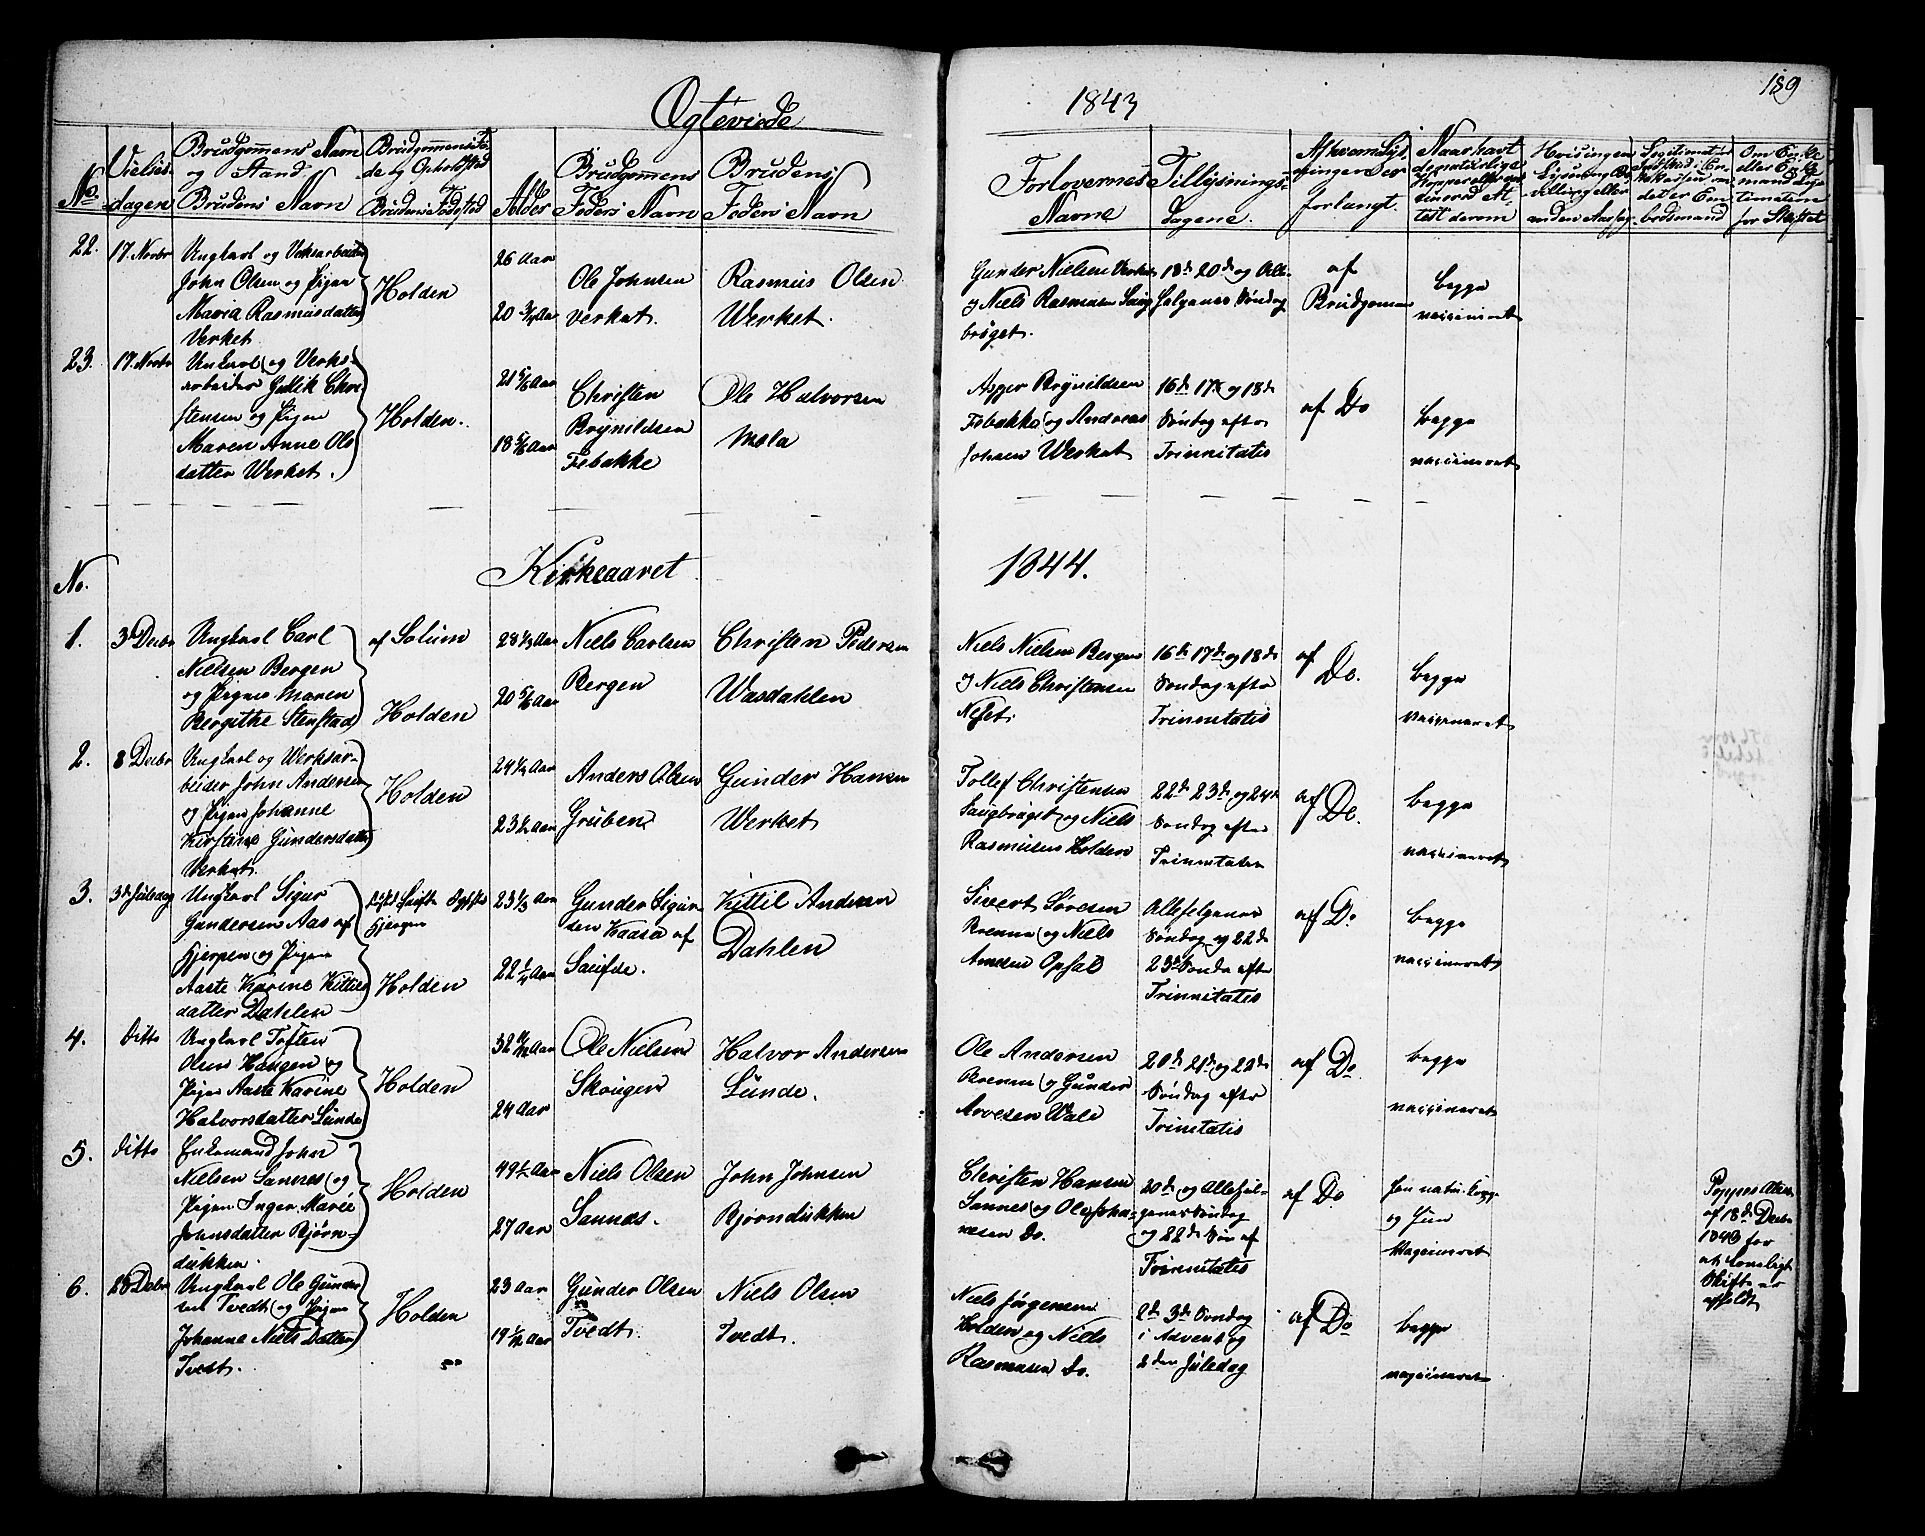 Ogteviede
1843
189
No
Vielses-
dagen
Brudgommens Navn
og Stand
Brudens Navn
Brudgommens Fø-
de og Opholdsted
Brudens Fødested
Alder
Brudgommens
Faders Navn
Brudens
Faders Navn
Forlovernes
Navne
Tillysnings-
dagene.
Af hvem Lys-
ningen er
forlangt.
Naar havt
de naturlige
Kopper eller va-
sineret At-
test derom
22.
17. Novbr
Ungkarl og Verksarbeider
John Olsen og Pigen
Maria Rasmusdatter
Verket
Holden
26 Aar
20 3/4 Aar
Ole Johnsen
Verket.
Rasmus Olsen
Werket.
Gunder Nielsen Verket
og Niels Rasmusen Saug-
bruget.
18de 20de og Alle-
helgenes Søndag
af
Brudgommen
begge
vaccineret
23.
17. Novbr
Unkarl og Verks-
arbeider Gullik Chri-
stensen og Pigen
Maren Anne Ols-
datter Werket.
Holden.
21 5/6 Aar
18 5/6 Aar
Christen
Brynildsen
Febakke
Ole Halvorsen
Mæla
Asger Brynildsen
Febakke og Andreas
Johsen Werket
16de 17de og 18de
Søndag efter
Trinnitatis
af Do
begge
vaccineret
No.
Kirkeaaret
1844.
1.
3de Decbr
Ungkarl Carl
Nielsen Bergen
og Pigen Maren
Bergithe Stenstad
af Solum
Holden
28 1/3 Aar
20 5/6 Aar
Niels Carlsen
Bergen
Christen Pedersen
Wasdahlen
Niels Nielsen Bergen
og Niels Christensen
Næset.
16de 17de og 18de
Søndag efter
Trinnitatis
af Do.
begge
vaccineret
2.
8 Decbr
Ungkarl og Werksar-
beider John Andersen
og Pigen Johanne
Kirstine Gundersdatter
Verket.
Holden
24 1/4 Aar
23 1/2 Aar
Anders Olsen
Gruben
Gunder Hansen
Werket
Tollef Christensen
Saugbruget og Niels
Rasmusen Holden
22de 23de og 24de
Søndag efter
Trinnitatis
af Do.
begge
vaccineret
3.
3de Juledag
Ungkarl Sigur
Gundersen Aas af
Gjerpen og Pigen
Aaste Karine Kittils-
datter Dahlen
Gjerpen
Holden
23 1/3 Aar
22 1/4 Aar
Gunder Sigur-
den Kaasa af
Saufde.
Kittil Andersen
Dahlen
Sivert Søresen
Brenna og Niels
Amsen Opsal
Allehelgenes
Søndag og 22de
23de Sønda efter
Trinnitatis
af Do
begge
vaccineret
4.
Ditto
Ungkarl Tosten
Olsen Haugen og
Pigen Aaste Karine
Halvorsdatter Lunde
Holden
24 Aar
Ole Nielsen
Skougen
Halvor Andersen
Lunde.
Ole Andersen
Brenna og Gunder
Arvesen Wale
20de 21de og 22de
Søndag efter
Trinitatis
af Do
begge
vaccineret
5.
ditto
Enkemand John
Nielsen Sannes og
Pigen Inger Marie
Johnsdatter Bjørn-
dukken
Holden
49 1/2 Aar
27 Aar
Niels Olsen
Sannæs.
John Johnsen
Bjørndukken
Christen Hansen
Sannes og Ole Joha-
nesen Do.
20de og Allehel-
genes Søndag
og 22de Søn af
Trinnitatis
af Do
han natu. kopp
og hun
Vaccineret
af 18de Decbr
1843 for
at lovligt
Skifte er
afholdt
6.
28 Decbr
Ungkarl Ole Gunder-
sen Tvedt og Pigen
Johanne Niels Datter
Tvedt.
Holden
23 Aar
19 1/12 Aar
Gunder Olsen
Tvedt.
Niels Olsen
Tvedt.
Niels Jørgensen
Holden og Niels
Rasmusen Do.
2de 3de Søndag
i Advent og
2den Juledag
af Do
begge
vaccineret